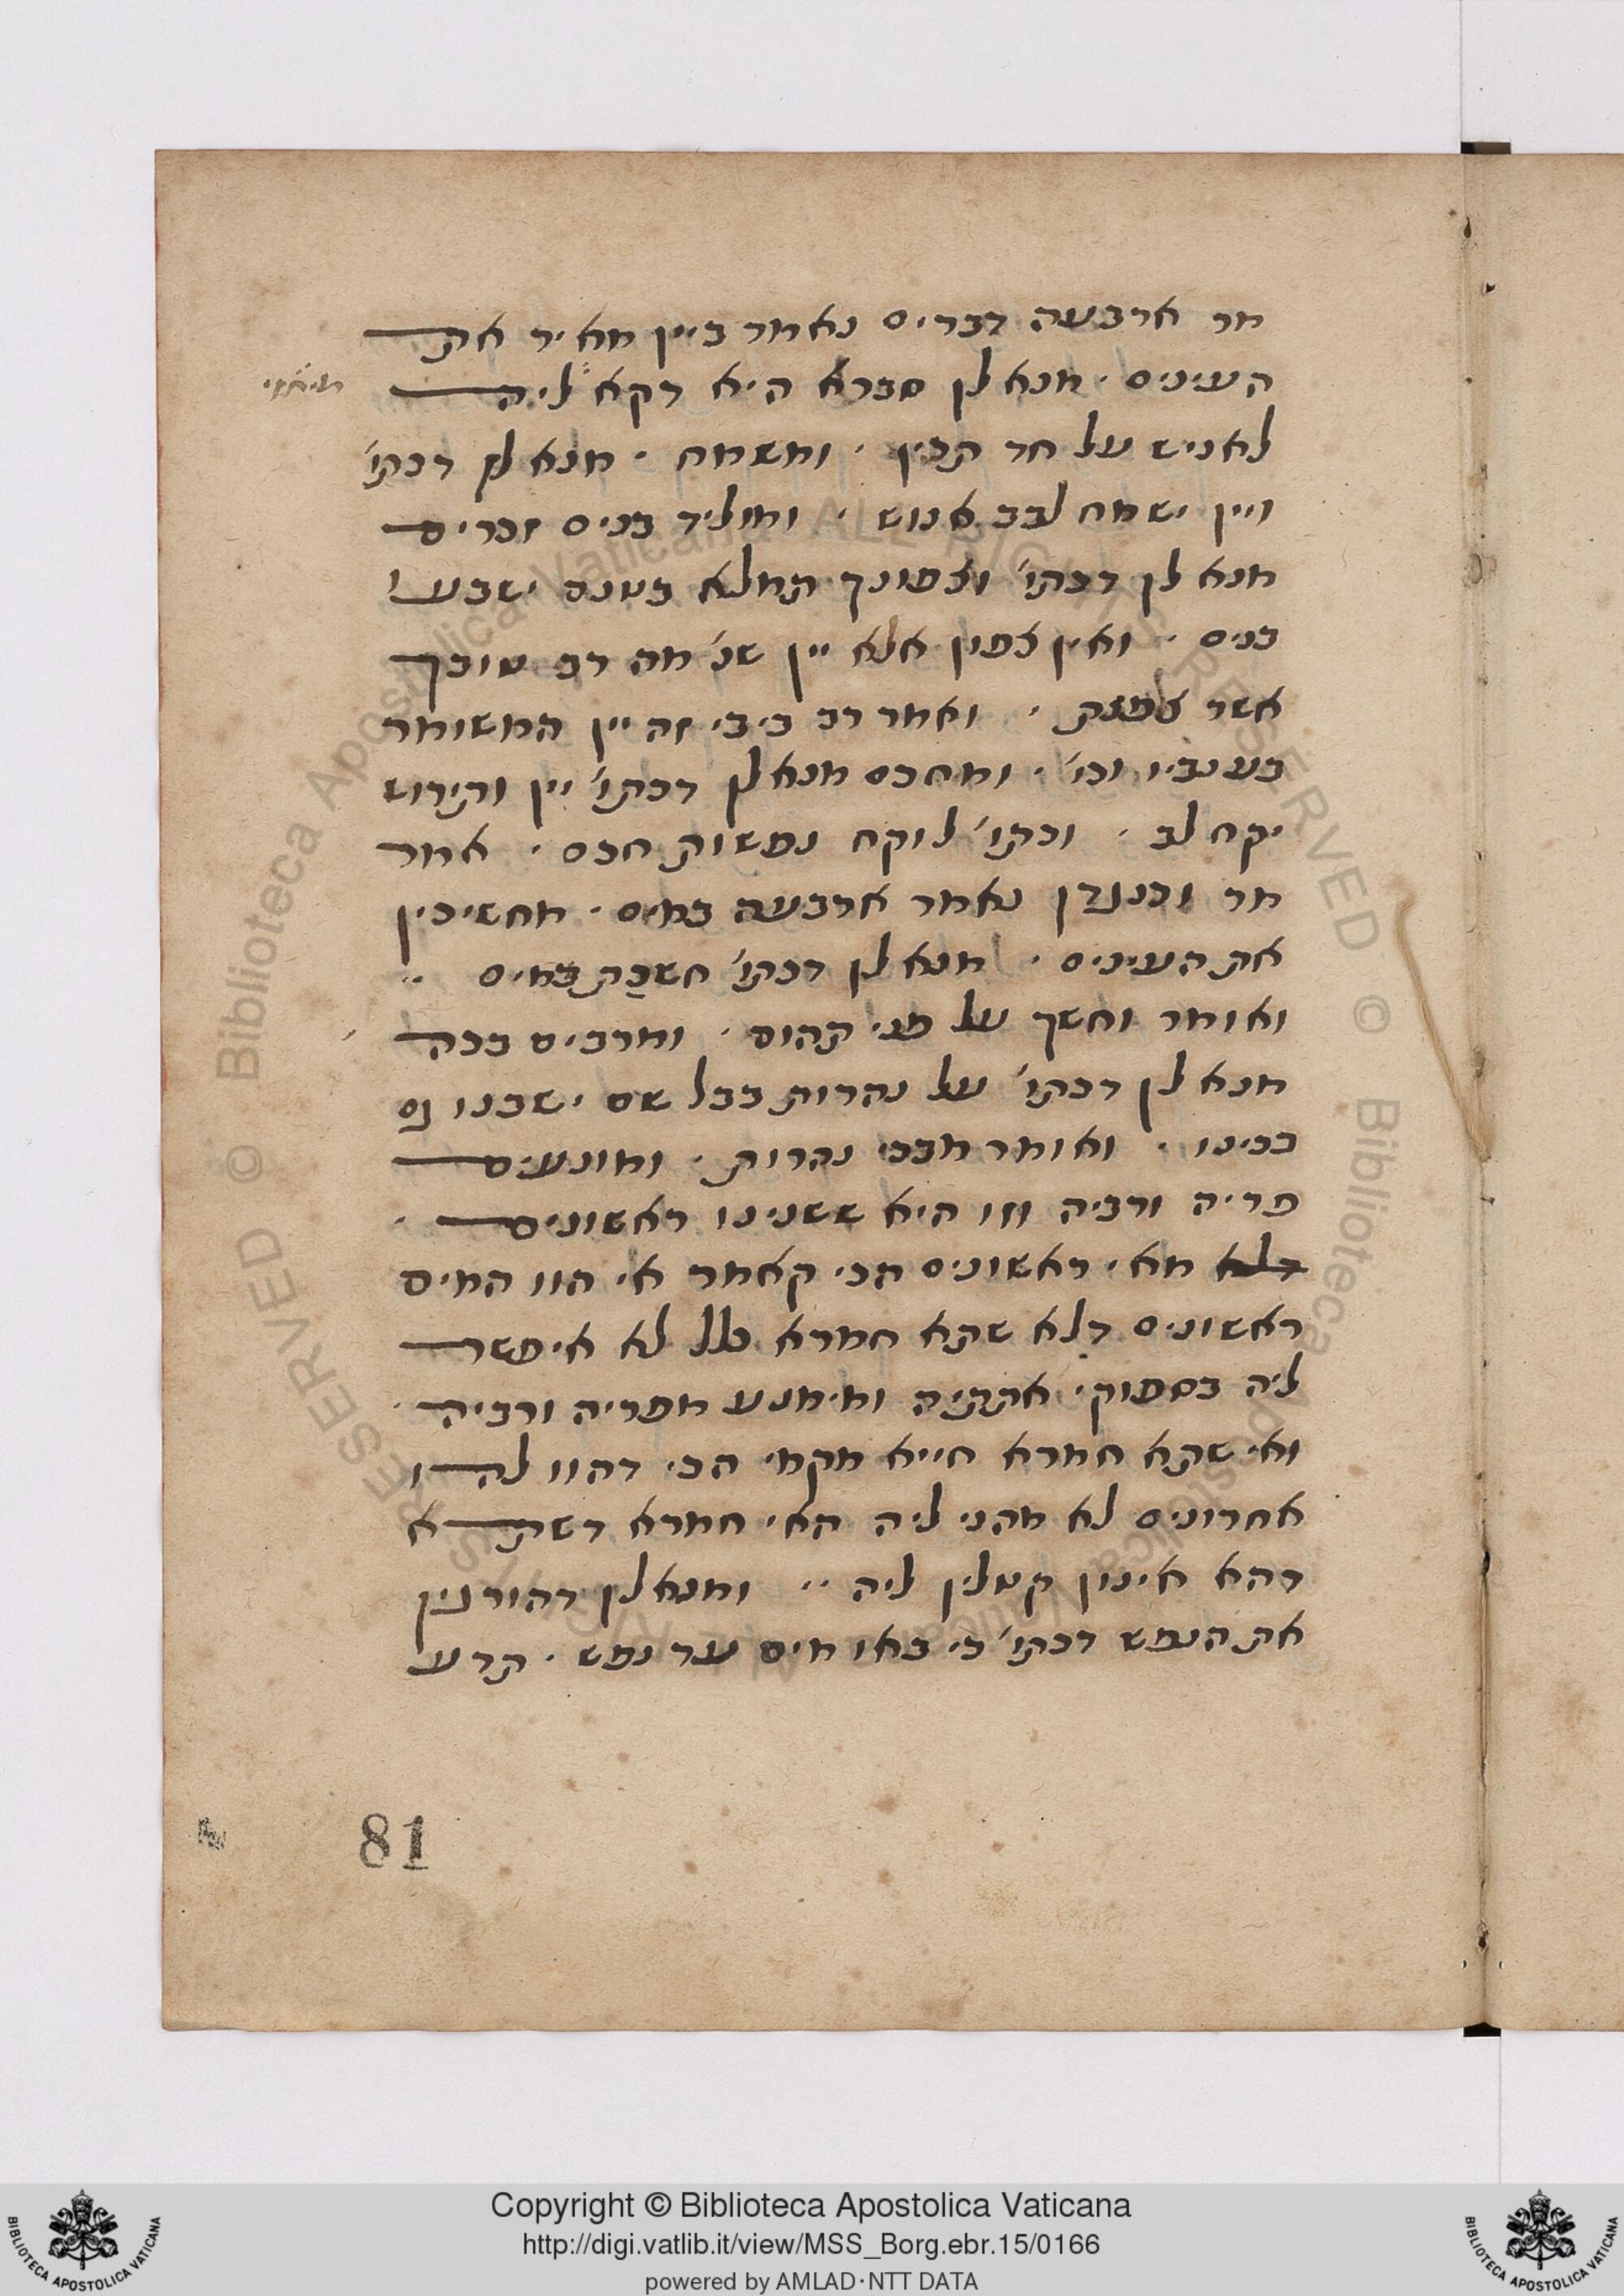 מר ארבעה דברים נאמר ביין מאיר את
העינים · מנא לן סברא היא דקא ליה
לאניש על חד תרין · ומשמח · מנא לן דכתי׳
ויין ישמח לבב אנוש · ומוליד בנים זכרים
מנא לן דכתי׳ וצפונך תמלא בטנם ישבעו
בנים · ואין צפון אלא יין שנ׳ מה רב טובך
אשר צפנת · ואמר רב ביבי זה יין המשומר
בענביו וכו׳ · ומחכם מנא לן דכתי׳ יין ותירוש
יקח לב · וכתי׳ לוקח נפשות חכם · אמר
מר וכנגדן נאמר ארבעה במים · מחשיכין
את העינים · מנא לן דכתי׳ חשכת מים ··
ואומר וחשך על פני תהום · ומרבים בכה ·
מנא לן דכתי׳ על נהרות בבל שם ישבנו גם
בכינו · ואומר מבכי נהרות · ומונעים
פריה ורביה וזו היא ששנינו ראשונים ·
דלא מאי ראשונים הכי קאמר אי הוו המים
ראשונים דלא שתא חמרא כלל לא איפשר
ליה בספוקי אתתיה ומימנע מפריה ורביה ·
ואי שתא חמרא חייא מקמי הכי דהוו להו
אחרונים לא מהני ליה האי חמרא דשתא
דהא אינון קטלין ליה ·· ומנא לן דהורגין
את הנפש דכתי׳ כי באו מים עד נפש · קרע
81
Copyright © Biblioteca Apostolica Vaticana
http://digi.vatlib.it/view/MSS_Borg.ebr.15/0166
powered by AMLAD·NTT DATA